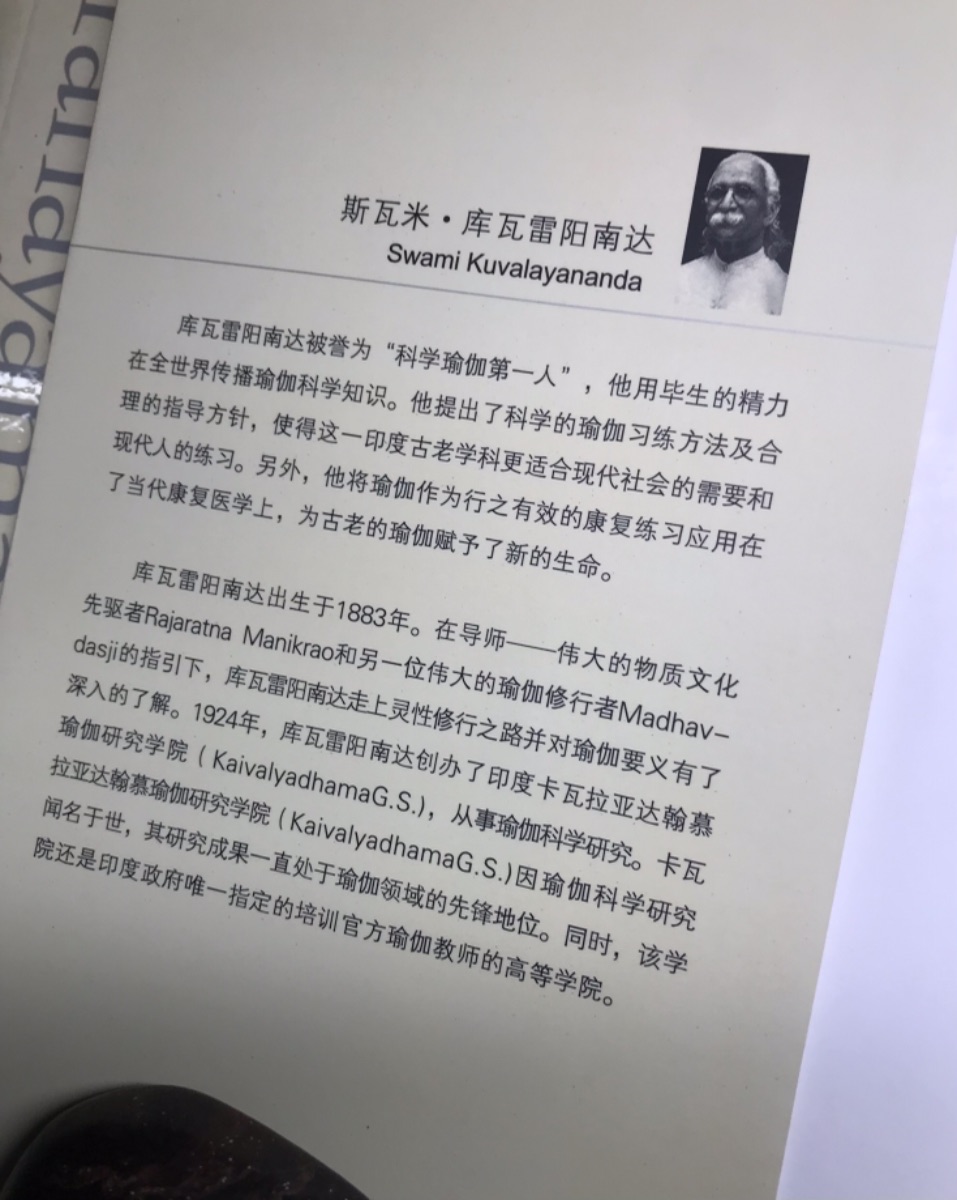 斯瓦米·库瓦雷阳南达
Swami Kuvalayananda
库瓦雷阳南达被誉为“科学瑜伽第一人”，他用毕生的精力
在全世界传播瑜伽科学知识。他提出了科学的瑜伽习练方法及合
理的指导方针，使得这一印度古老学科更适合现代社会的需要和
现代人的练习。另外，他将瑜伽作为行之有效的康复练习应用在
了当代康复医学上，为古老的瑜伽赋予了新的生命。
库瓦雷阳南达出生于1883年。在导师——伟大的物质文化
先驱者Rajaratna Manikrao和另一位伟大的瑜伽修行者Madhav-
dasji的指引下，库瓦雷阳南达走上灵性修行之路并对瑜伽要义有了
深入的了解。1924年，库瓦雷阳南达创办了印度卡瓦拉亚达翰慕
瑜伽研究学院（KaivalyadhamaG.S.)，从事瑜伽科学研究。卡瓦
拉亚达翰慕瑜伽研究学院（KaivalyadhamaG.S.)因瑜伽科学研究
闻名于世，其研究成果一直处于瑜伽领域的先锋地位。同时，该学
院还是印度政府唯一指定的培训官方瑜伽教师的高等学院。